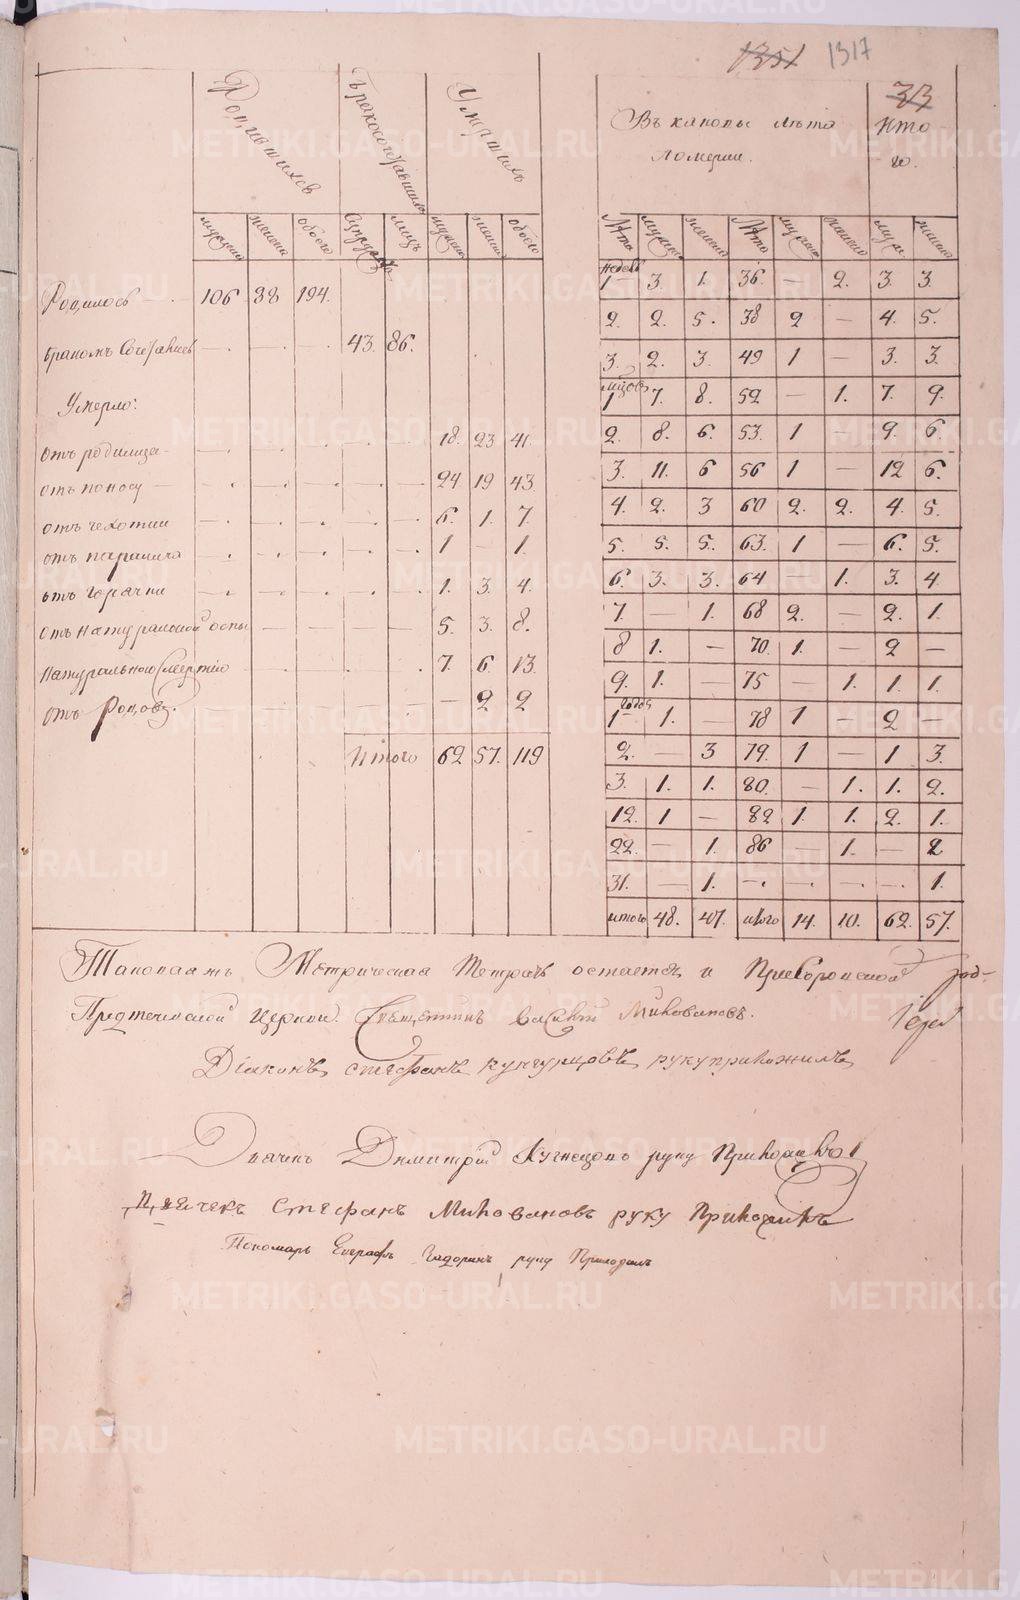 1351 1317
33
Родившихся Бракосочетавшихся Умершихъ
Въ каковы лѣта померли. Итого.
мужска женска обоего супружес. лицъ мужска женска обоего
Лѣта мужска женска Лѣта мужска женска муж. женска
Родилось — 106 88 194.
бракомъ Сочетались — — — 43. 86.
Умерло:
отъ родимца — 18. 23 41.
отъ поносу — 24 19 43.
отъ чехотки 6. 1. 7.
отъ паралича 1 — 1.
отъ горячки 1. 3. 4.
отъ натуральной оспы 5. 3. 8.
натуральною смертию 7. 6 13.
отъ родовъ. — 2 2
Итого 62 57. 119
недель
1 3. 1. 36. — 2. 3. 3.
2. 2. 5. 38 2 — 4. 5.
3. 2. 3. 49 1 — 3. 3.
мѣцовъ
1 7. 8. 52 — 1. 7. 9.
2. 8. 6. 53. 1 — 9. 6
3. 11. 6 56 1 — 12 6.
4. 2. 3 60 2. 2. 4. 5.
5. 5. 5. 63. 1 — 6. 5.
6. 3. 3. 64 — 1. 3. 4
7. — 1. 68 2. — 2. 1.
8 1. — 70. 1. — 2 —
9. 1. — 75 — 1. 1. 1.
годов
1 1. — 78 1 — 2 —
2. — 3 79. 1 — 1 3.
3. 1. 1. 80. — 1. 1. 2.
12. 1 — 82 1. 1. 2. 1.
22. — 1. 86 — 1. — 2
31. — 1. — — — — 1.
итого 48. 47. итого 14. 10. 62. 57.
Таковаяжъ Метрическая Тетрадь остается и при
Предтеченской Церкви. Священникъ василий Миловановъ.
Діаконъ стефанъ кунгурцовъ руку приложилъ
Дьячекъ Димитрій Кузнецовъ руку Приложилъ
Дьячекъ Стефанъ Миловановъ руку Приложилъ
Пономарь Евграфъ руку Приложилъ
METRIKI.GASO-URAL.RU